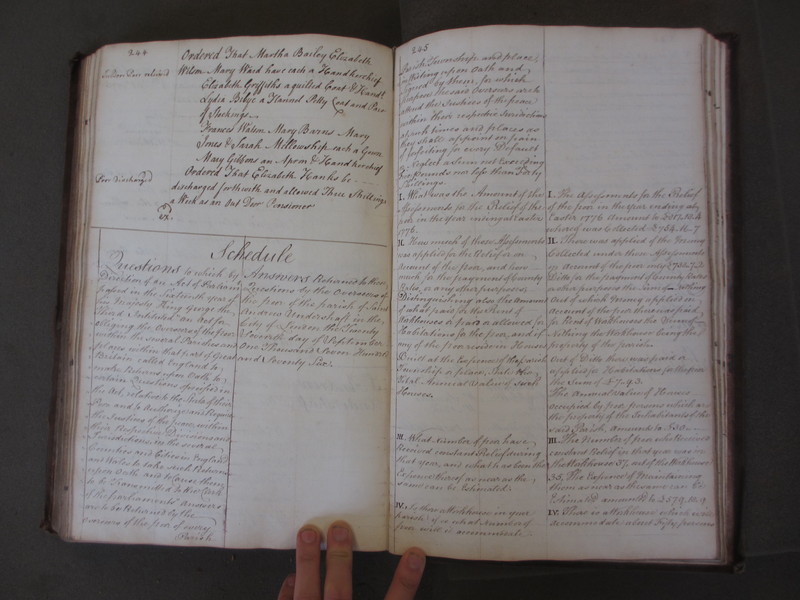 244
Ordered That Martha Bailey Elizabeth
Wilson Mary Ward have each a Handkerchief
Elizabeth Griffiths a quilted Coat & Handf.
Lydia a Flannel Petty Coat and Pair
of Stockings
Frances Mary Barns Mary
Jones & Sarah Millowship each a Gown
Mary Gibbons an Apron & Handkerchief
Poor discharged
Ordered That Elizabeth Hanks be
discharged forthwith and allowed Three Shillings
a Week as an Out Door Pensioner
Schedule
Questions to which by
Direction of an Act of Parliament
passed in the Sixteenth year of
his Majesty King George the
Third Intituled "an Act for
obliging the Overseers of the poor
within the several Parishes and
places within that part of Great
Britain called England to
make Returns upon Oath to
certain Questions specified in
the Act, relative to the State of the
Poor and to Authorize and Require
the Justices of the peace within
their Respective Divisions and
Jurisdictions in the several
Counties and Cities in England
and Wales to take such Returns
upon Oath and to cause them
to be Transmitted to the Clerk
of the parliaments" Answers
are to be Returned by the
overseers of the poor of every
Parish
Answers Returned to these
Questions by the Overseers of
the poor of the parish of Saint
Andrew Undershaft in the
City of London the Twenty
Seventh day of September
One Thousand Seven Hundred
and Seventy Six.
245
Parish Township and place,
in Writing upon Oath and
signed by them, for which
purpose the said Overseers are to
attend the Justices of the peace
within their respective Jurisdictions
at such times and places as
they shall appoint on pain
of forfeiting for every Default
or Neglect a Sum not Exceeding
pounds nor less than Forty
Shillings.
I. What was the Amount of the
Assessments for the Relief of the
poor in the year ending at Easter
1776.
II. How much of those Assessments
was applied for the Relief or on
Account of the poor, and how
much for the payment of County
Rates, or any other purposes
Distinguishing also the Amount
of what paid for the Rent of
Workhouses & paid or allowed for
Habitations for the poor, and if
any of the poor reside in Houses
Built at the Expence of the parish
Township or place, State the
Total Annual Value of such
Houses.
III. What Number of poor have
Received constant Relief during
that year, and what has been the
Expence thereof as near as the
same can be Estimated.
IV. Is there a Workhouse in your
parish? if so what Number of
poor will it accommodate
I. The Assessments for the Relief
of the poor in the year ending at
Easter 1776 Amount to
whereof was Collected
II. There was applied of the Money
Collected under those Assessments
on Account of the poor
Ditto in the payment of County Rates
other purposes the Sum of Nothing
Out of which Money applied on
Account of the poor there was paid
for Rent of Workhouses the Sum of
Nothing the Workhouse being the
property of the parish.
Out of Ditto there was paid or
applied for Habitations for the poor
the Sum of £ 7. 9. 3.
The Annual Value of Houses
occupied by poor persons which are
the property of the Inhabitants of the
said Parish Amounts to £50.
III. The Number of poor who Received
constant Relief in that year was in
the Workhouse 37, out of the Workhouse
35. The Expence of Maintaining
them as near as the same can be
Estimated amounts to £ 579. 10. 9
IV. There is a Workhouse which will
accommodate about Fifty persons